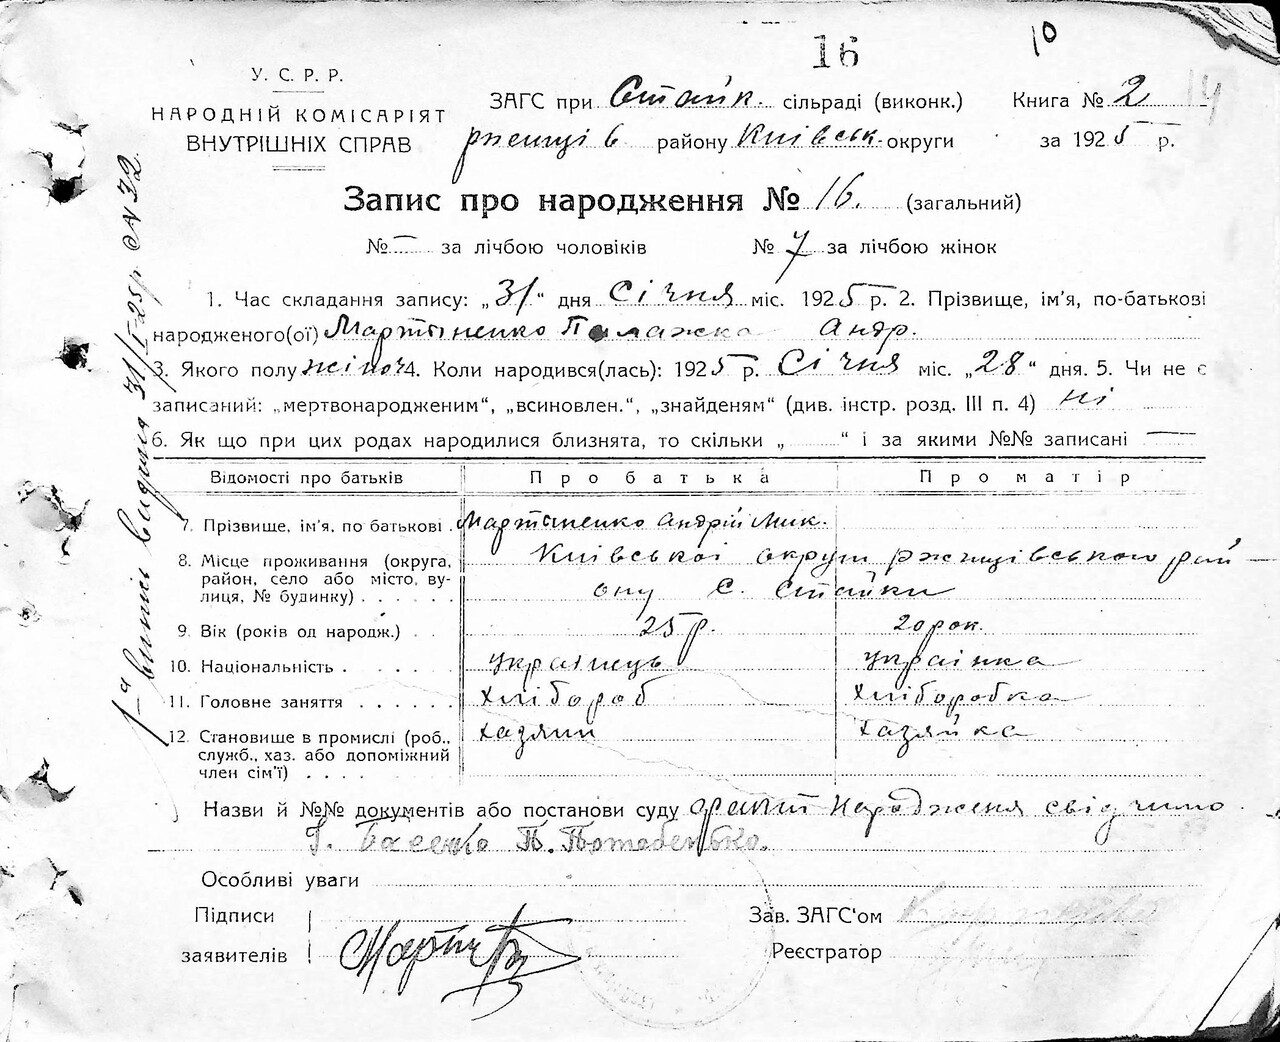 16
10
14
У. С. Р. Р.
НАРОДНІЙ КОМІСАРІЯТ
ВНУТРІШНІХ СПРАВ
ЗАГС при Стайк. сільраді (виконк.)
Книга № 2
району Київськ. округи
за 1925 р.
Запис про народження № 16. (загальний)
№ — за лічбою чоловіків
№ 7 за лічбою жінок
1. Час складання запису: „31“ дня Січня міс. 1925 р. 2. Прізвище, ім'я, по-батькові
народженого(ої) Мартиненко Палажка Андр.
3. Якого полу жіноч 4. Коли народився(лась): 1925 р. Січня міс. „28“ дня. 5. Чи не є
записаний: „мертвонародженим“, „всиновлен.“, „знайденям“ (див. інстр. розд. III п. 4) ні
6. Як що при цих родах народилися близнята, то скільки „ “ і за якими №№ записані —
Відомості про батьків
Про батька
Про матір
7. Прізвище, ім'я, по батькові . Мартиненко Андрій Мик.
8. Місце проживання (округа, район, село або місто, вулиця, № будинку) . . . . . .
Київської округи ржищівського рай
ону с. Стайки
9. Вік (років од народж.) . . 25 р. 20 рок.
10. Національність . . . . . українець українка
11. Головне заняття . . . . . . хлібороб хліборобка
12. Становище в промислі (роб., служб., хаз. або допоміжний член сім'ї) . . . .
хазяин хазяйка
Назви й №№ документів або постанови суду народженя свідчимо
Г. Басенко П. Потабенько.
Особливі уваги
Підписи
заявителів
Мартин
Зав. ЗАГС'ом
Реєстратор
1-а випись видана 31/I-25р № 32